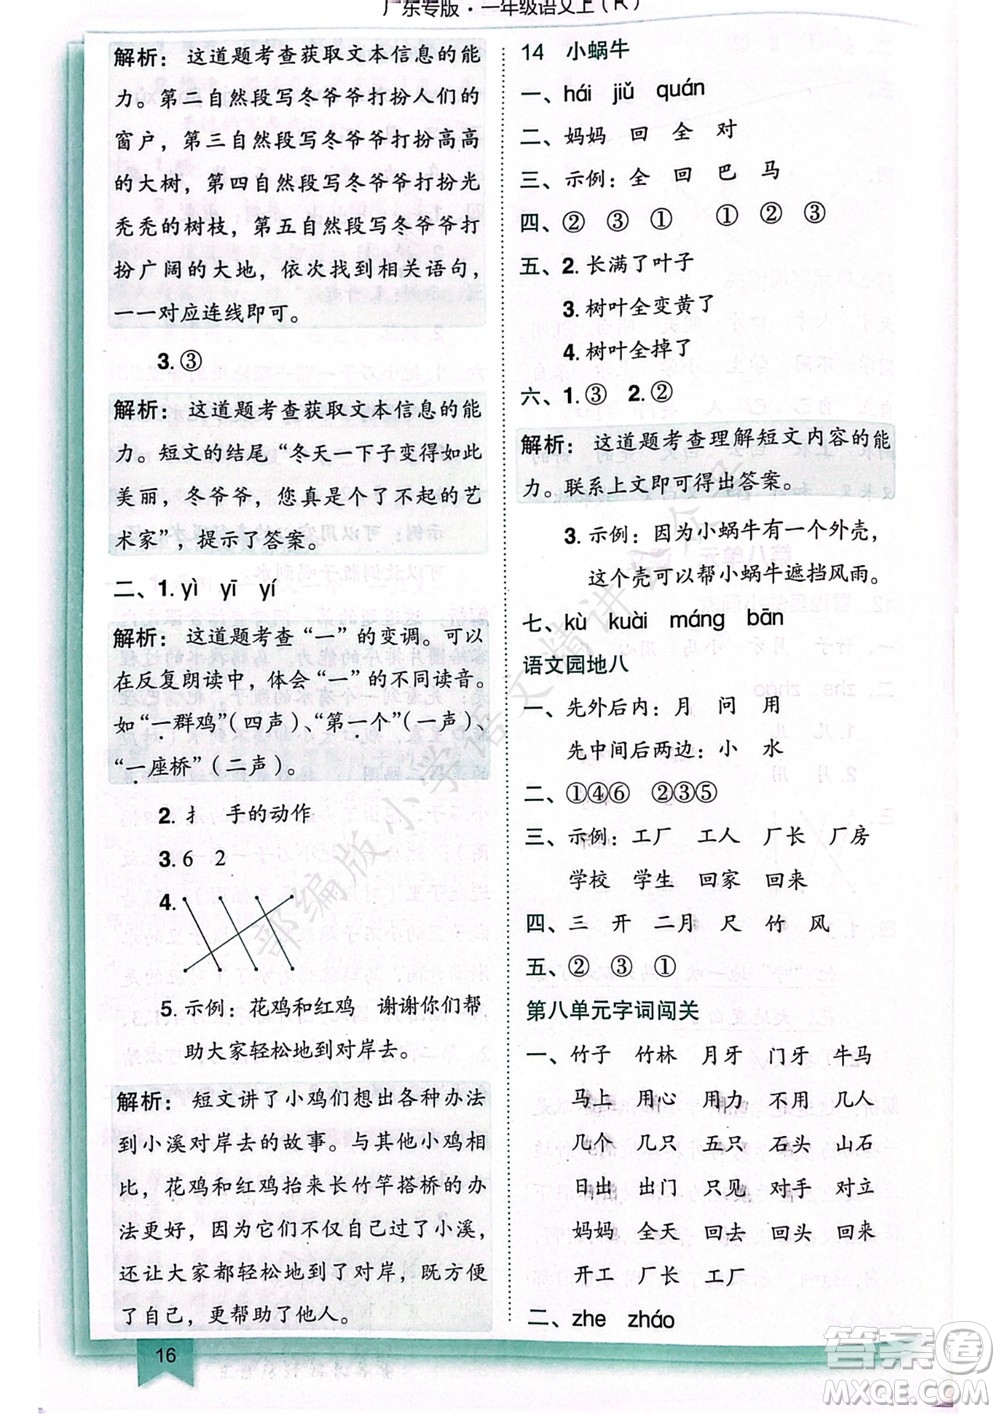 广东专版·一年级语文上(R)
解析：这道题考查获取文本信息的能
力。第二自然段写冬爷爷打扮人们的
窗户，第三自然段写冬爷爷打扮高高
的大树，第四自然段写冬爷爷打扮光
秃秃的树枝，第五自然段写冬爷爷打
扮广阔的大地，依次找到相关语句，
一一对应连线即可。
3.③
解析：这道题考查获取文本信息的能
力。短文的结尾“冬天一下子变得如此
美丽，冬爷爷，您真是个了不起的艺
术家”，提示了答案。
二、1.yì yī yí
解析：这道题考查“一”的变调。可以
在反复朗读中，体会“一”的不同读音。
如“一群鸡”（四声）、“第一个”（一声）、
“一座桥”（二声）。
2.扌 手的动作
3.6 2
4.
5.示例：花鸡和红鸡 谢谢你们帮
助大家轻松地到对岸去。
解析：短文讲了小鸡们想出各种办法
到小溪对岸去的故事。与其他小鸡相
比，花鸡和红鸡抬来长竹竿搭桥的办
法更好，因为它们不仅自己过了小溪，
还让大家都轻松地到了对岸，既方便
了自己，更帮助了他人。
16
14 小蜗牛
一、hái jiǔ quán
二、妈妈 回 全 对
三、示例：全 回 巴 马
四、②③① ①②③
五、2.长满了叶子
3.树叶全变黄了
4.树叶全掉了
六、1.③ 2.②
解析：这道题考查理解短文内容的能
力。联系上文即可得出答案。
3.示例：因为小蜗牛有一个外壳，
这个壳可以帮小蜗牛遮挡风雨。
七、kù kuài máng bān
语文园地八
一、先外后内：月 问 用
先中间后两边：小 水
二、①④⑥ ②③⑤
三、示例：工厂 工人 厂长 厂房
学校 学生 回家 回来
四、三 开 二月 尺 竹 风
五、②③①
第八单元字词闯关
一、竹子 竹林 月牙 门牙 牛马
马上 用心 用力 不用 几人
几个 几只 五只 石头 山石
日出 出门 只见 对手 对立
妈妈 全天 回去 回头 工人
开工 厂长 工厂
二、zhe zháo
部编版小学语文精讲
答案圈
MXQE.COM